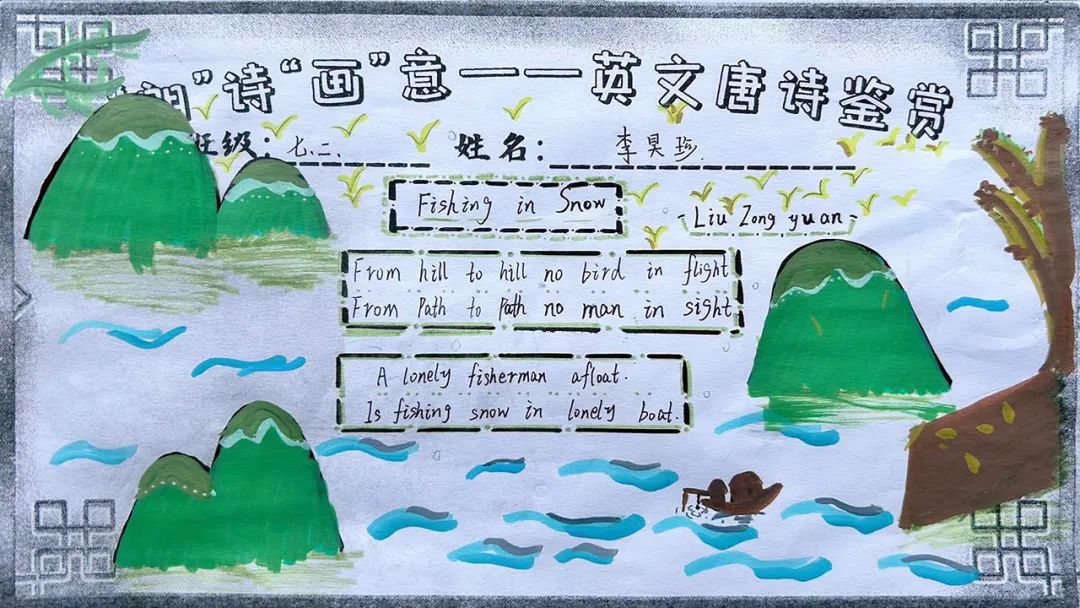 朗”诗“画”意——英文唐诗鉴赏
班级：七.二. 姓名：李昊珍.
Fishing in Snow
-Liu Zong yuan-
From hill to hill no bird in flight
From Path to Path no man in sight
A lonely fisherman afloat.
Is fishing snow in lonely boat.